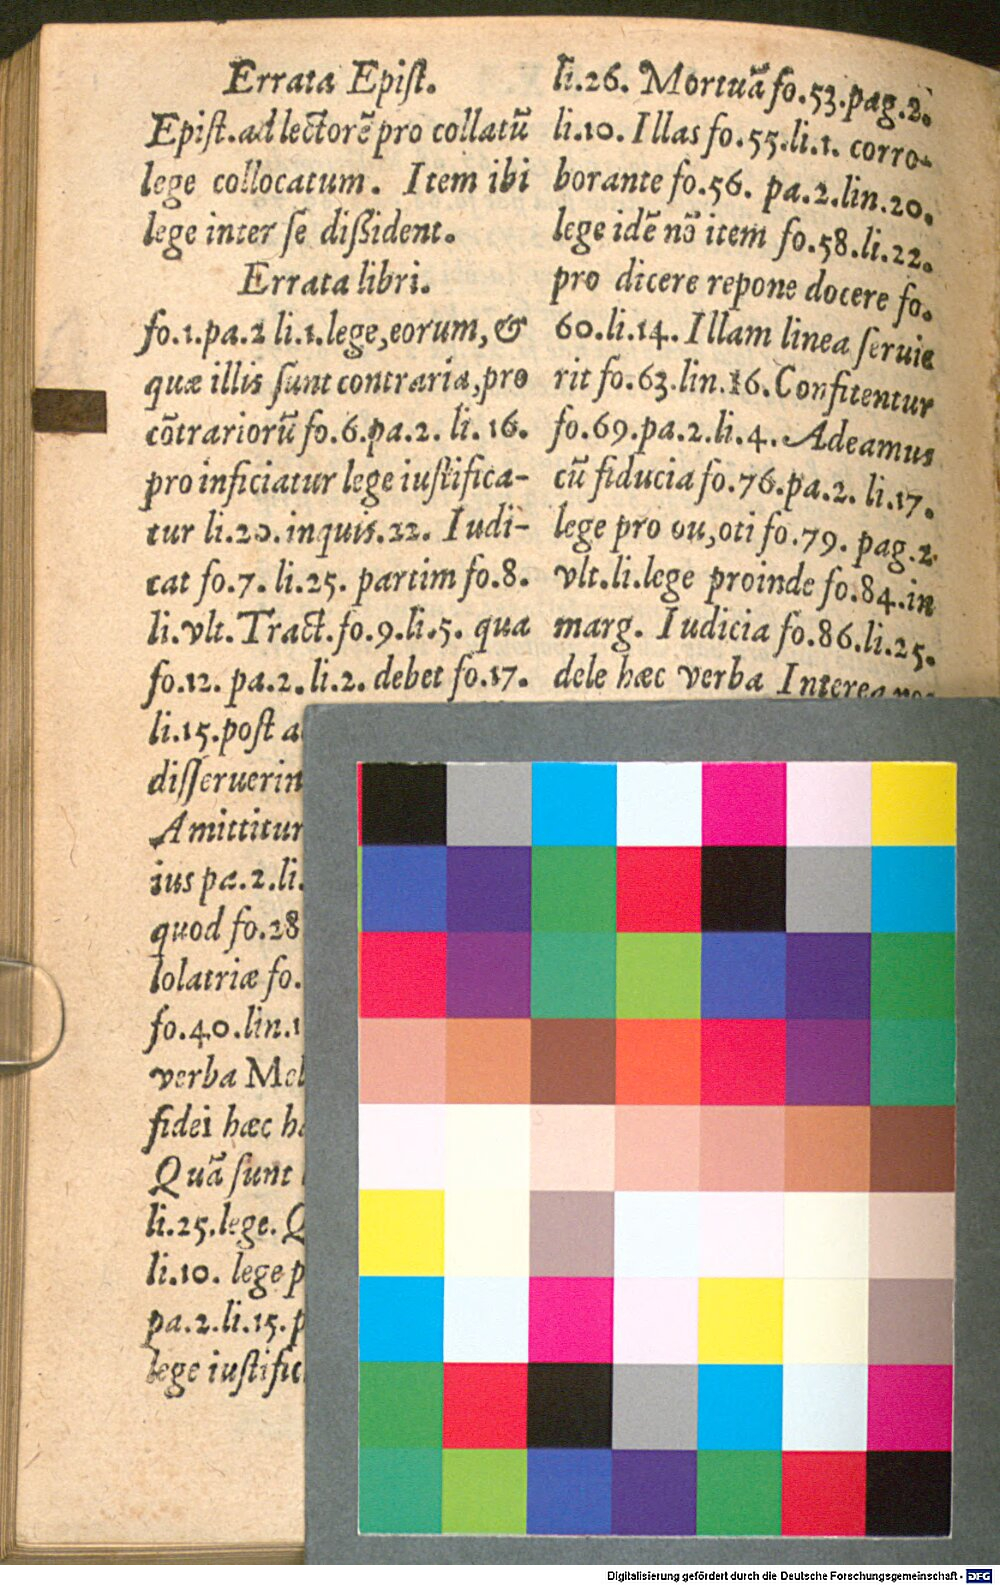 Errata Epist.
Epist. ad lectorē pro collatū
lege collocatum. Item ibi
lege inter se dißident.
Errata libri.
fo.1.pa.2 li.1.lege,eorum,&
quæ illis sunt contraria,pro
cōtrariorū fo.6.pa.2. li. 16.
pro inficiatur lege iustifica-
tur li.20.inquis.22. Iudi-
cat fo.7. li.25. partim fo.8.
li.vlt. Tract.fo.9.li.5. qua
fo.12. pa.2.li.2. debet fo.17.
li.15.post
disseruerin
Amittitur
ius pa.2.li.
quod fo.28
lolatriæ fo.
fo.40.lin.1
verba Mel
fidei hæc
Quā sunt
li.25.lege. Q
li.10. lege p
pa.2.li.15.p
lege iustific
li.26. Mortuā fo.53.pag.2.
li.10. Illas fo.55.li.1. corro-
borante fo.56. pa.2.lin.20.
lege idē nō item fo.58.li.22.
pro dicere repone docere fo.
60.li.14. Illam linea seruie
rit fo.63.lin.16. Confitentur
fo.69.pa.2.li.4. Adeamus
cū fiducia fo.76.pa.2. li.17.
lege pro ou,oti fo.79. pag.2.
vlt.li.lege proinde fo.84.in
marg. Iudicia fo.86.li.25.
dele hæc verba Interea
Digitalisierung gefördert durch die Deutsche Forschungsgemeinschaft - DFG